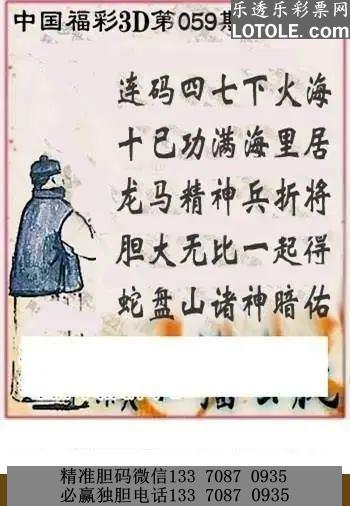 乐透乐彩票网
中国福彩3D第059期
LOTOLE.COM
连码四七下火海
十已功满海里居
龙马精神兵折将
胆大无比一起得
蛇盘山诸神暗佑
精准胆码微信133 7087 0935
必赢独胆电话133 7087 0935